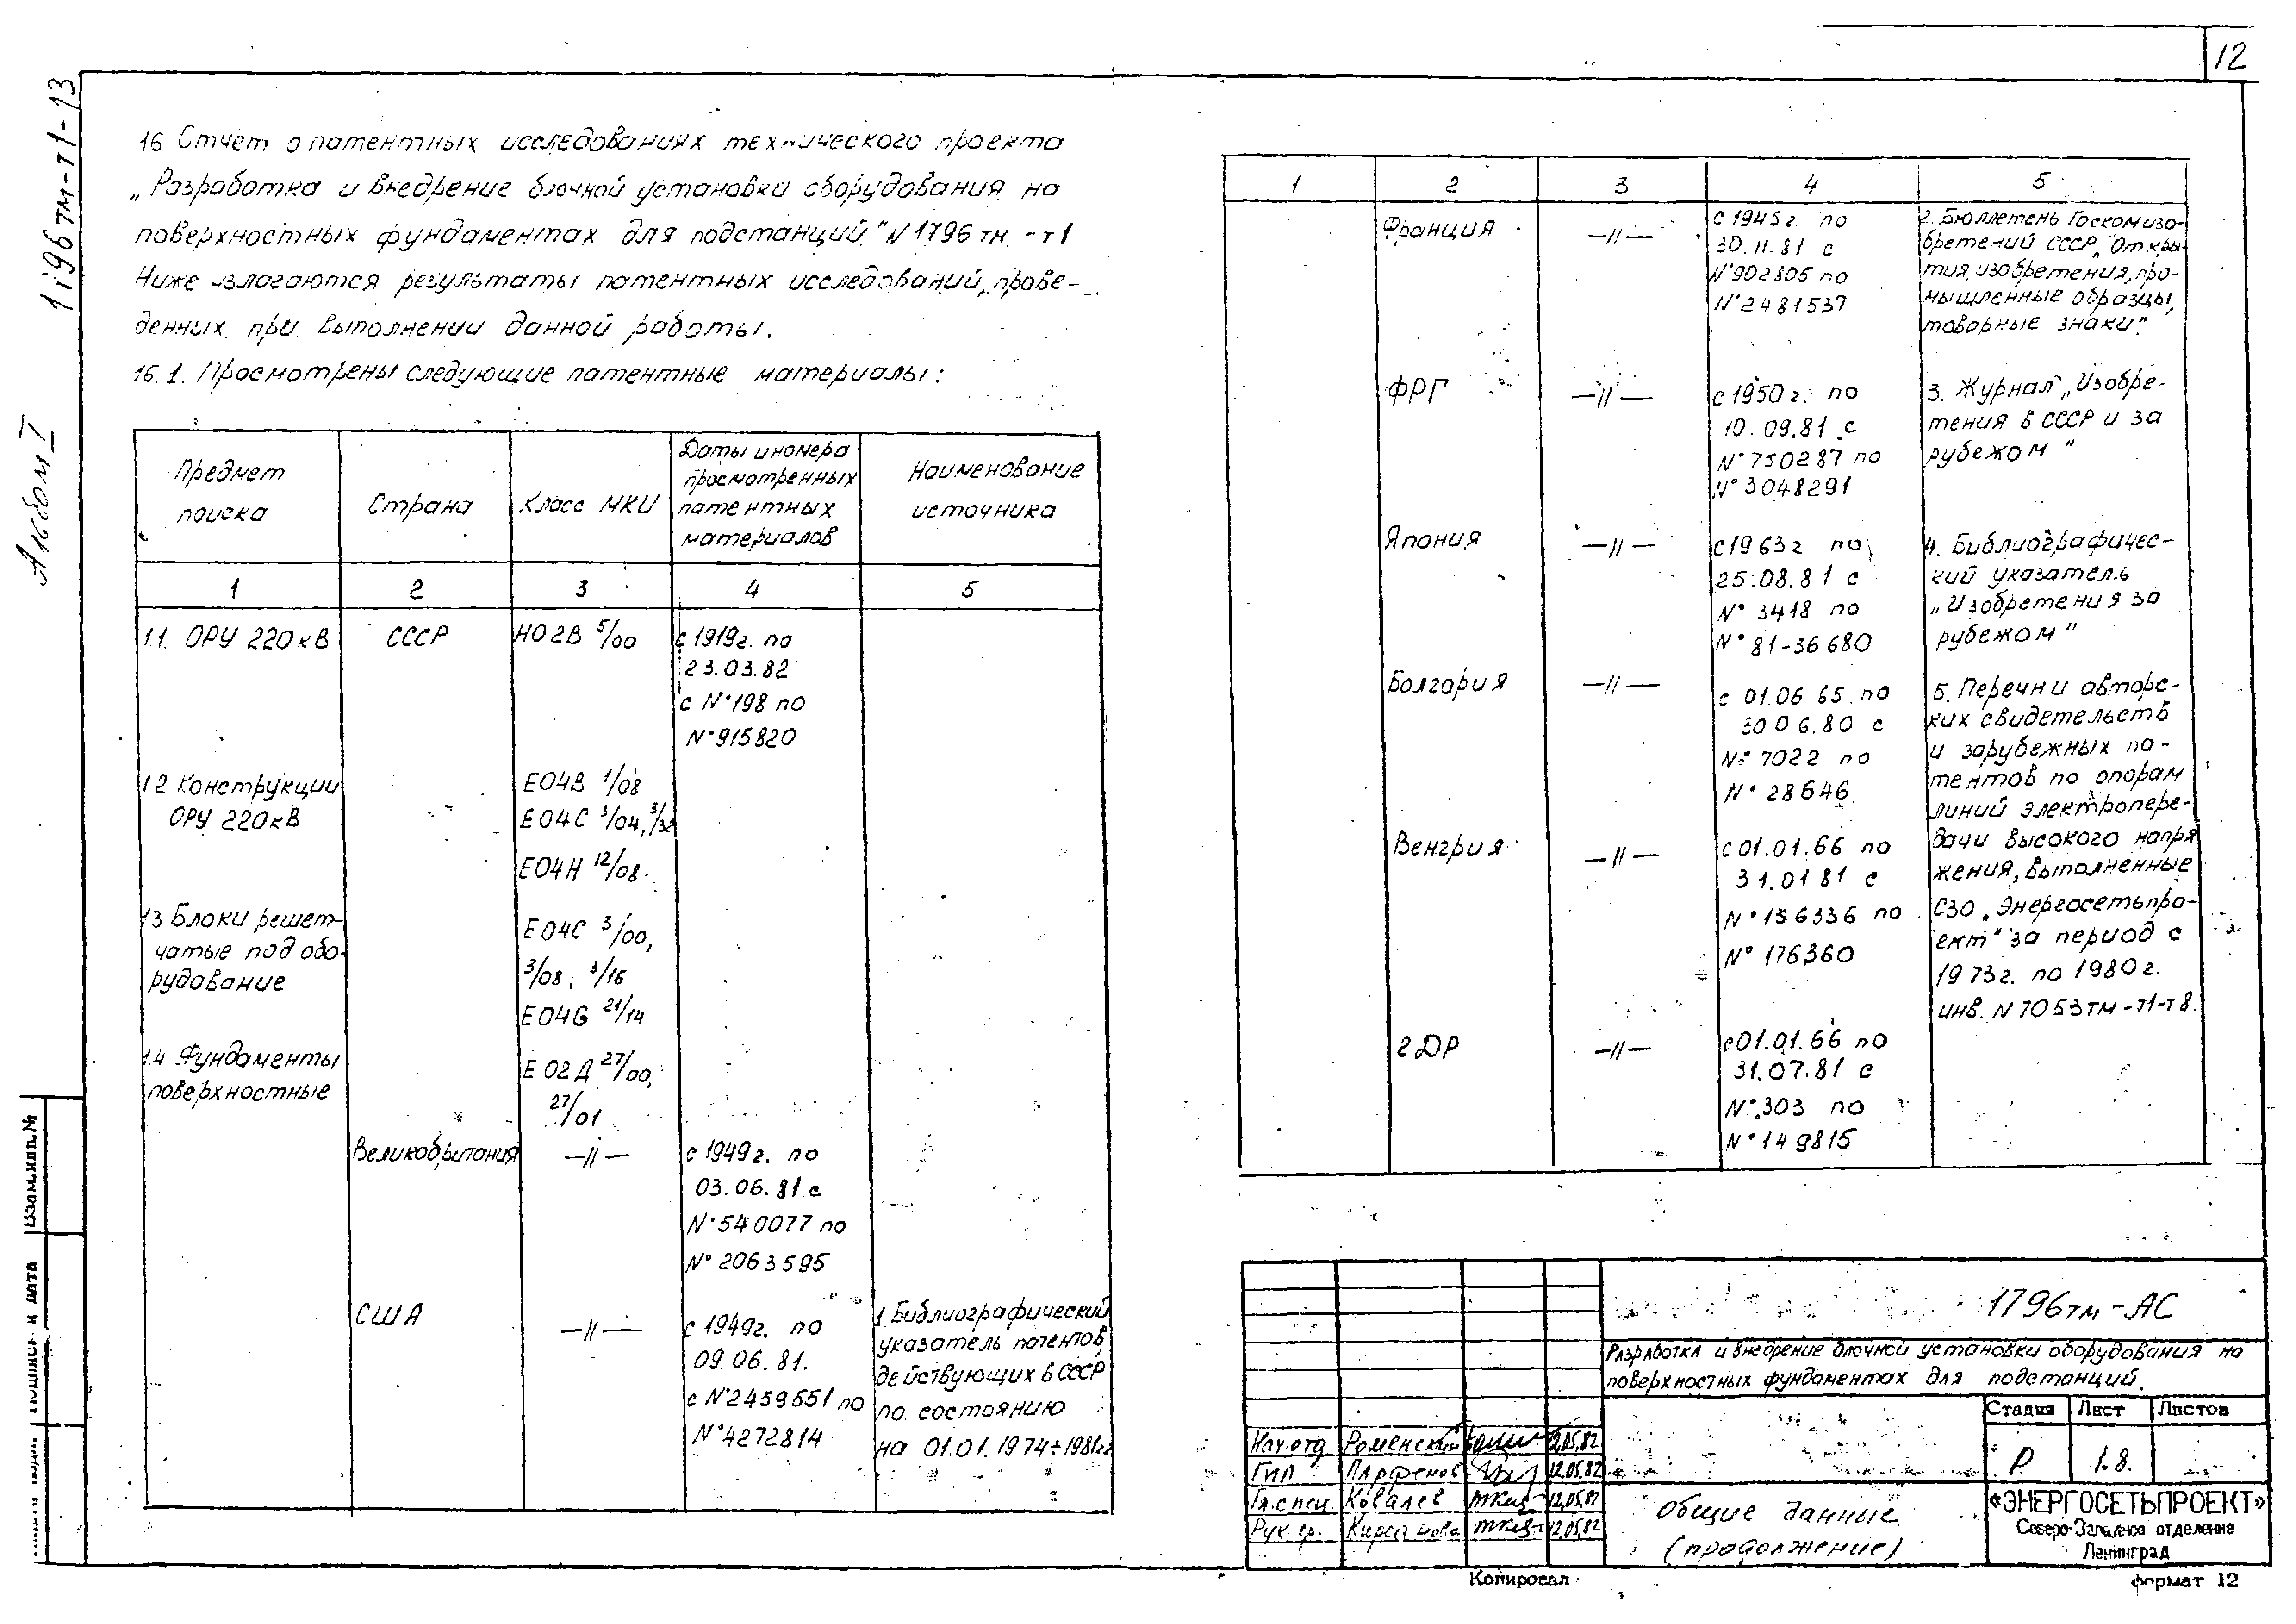 12
1796тм-т1-13
Альбом I
16 Отчет о патентных исследованиях технического проекта
„Разработка и внедрение блочной установки оборудования на
поверхностных фундаментах для подстанций" N 1796 тм - т1
Ниже излагаются результаты патентных исследований, прове-
денных при выполнении данной работы.
16.1. Просмотрены следующие патентные материалы:
Предмет поиска
Страна
Класс МКИ
Даты и номера
просмотренных
патентных
материалов
Наименование
источника
1 2 3 4 5
1.1. ОРУ 220кВ СССР Н02В 5/00 с 1919г. по
23.03.82
с N°198 по
N°915820
12 Конструкции Е04В 1/08
ОРУ 220кВ Е04С 3/04, 3/32
Е04Н 12/08
13 Блоки решет-
чатые под обо-
рудование
Е04С 3/00,
3/08; 3/16
Е04G 21/14
1.4. Фундаменты
поверхностные
Е02Д 27/00,
27/01
Великобритания —//— с 1949г. по
03.06.81 с
N°540077 по
N°2063595
США —//— с 1949г. по
09.06.81.
с N°2459551 по
N°4272814
1 Библиографический
указатель патентов,
действующих в СССР
по состоянию
на 01.01.1974÷1981гг
1 2 3 4 5
Франция —//— с 1945г. по
30.11.81 с
N°902805 по
N°2481537
2. Бюллетень Госкомизо-
бретений СССР „Откры-
тия, изобретения, про-
мышленные образцы,
товарные знаки".
ФРГ —//— с 1950г. по
10.09.81 с
N°750287 по
N°3048291
3. Журнал „Изобре-
тения в СССР и за
рубежом"
Япония —//— с 1963г по
25.08.81 с
N° 3418 по
N° 81-36680
4. Библиографичес-
кий указатель
„Изобретения за
рубежом"
Болгария —//— с 01.06.65 по
30.06.80 с
N° 7022 по
N° 28646
5. Перечни авторс-
ких свидетельств
и зарубежных па-
тентов по опорам
линий электропере-
дачи высокого напря
жения, выполненные
СЗО „Энергосетьпро-
ект" за период с
1973г. по 1980г.
инв. N 7053тм-т1-т8.
Венгрия —//— с 01.01.66 по
31.01 81 с
N°136336 по
N° 176360
ГДР —//— с 01.01.66 по
31.07.81 с
N° 303 по
N° 149815
1796тм-АС
Разработка и внедрение блочной установки оборудования на
поверхностных фундаментах для подстанций.
Стадия Лист Листов
Р 1.8.
Нач.отд Роменский 12.05.82
ГИП Парфенов 12.05.82
Гл.спец. Ковалев 12.05.82
Рук. гр. Кирсанова 12.05.82
Общие данные
(продолжение)
«ЭНЕРГОСЕТЬПРОЕКТ»
Северо-Западное отделение
Ленинград
Копировал
формат 12
Взам.инв.№
Подпись и дата